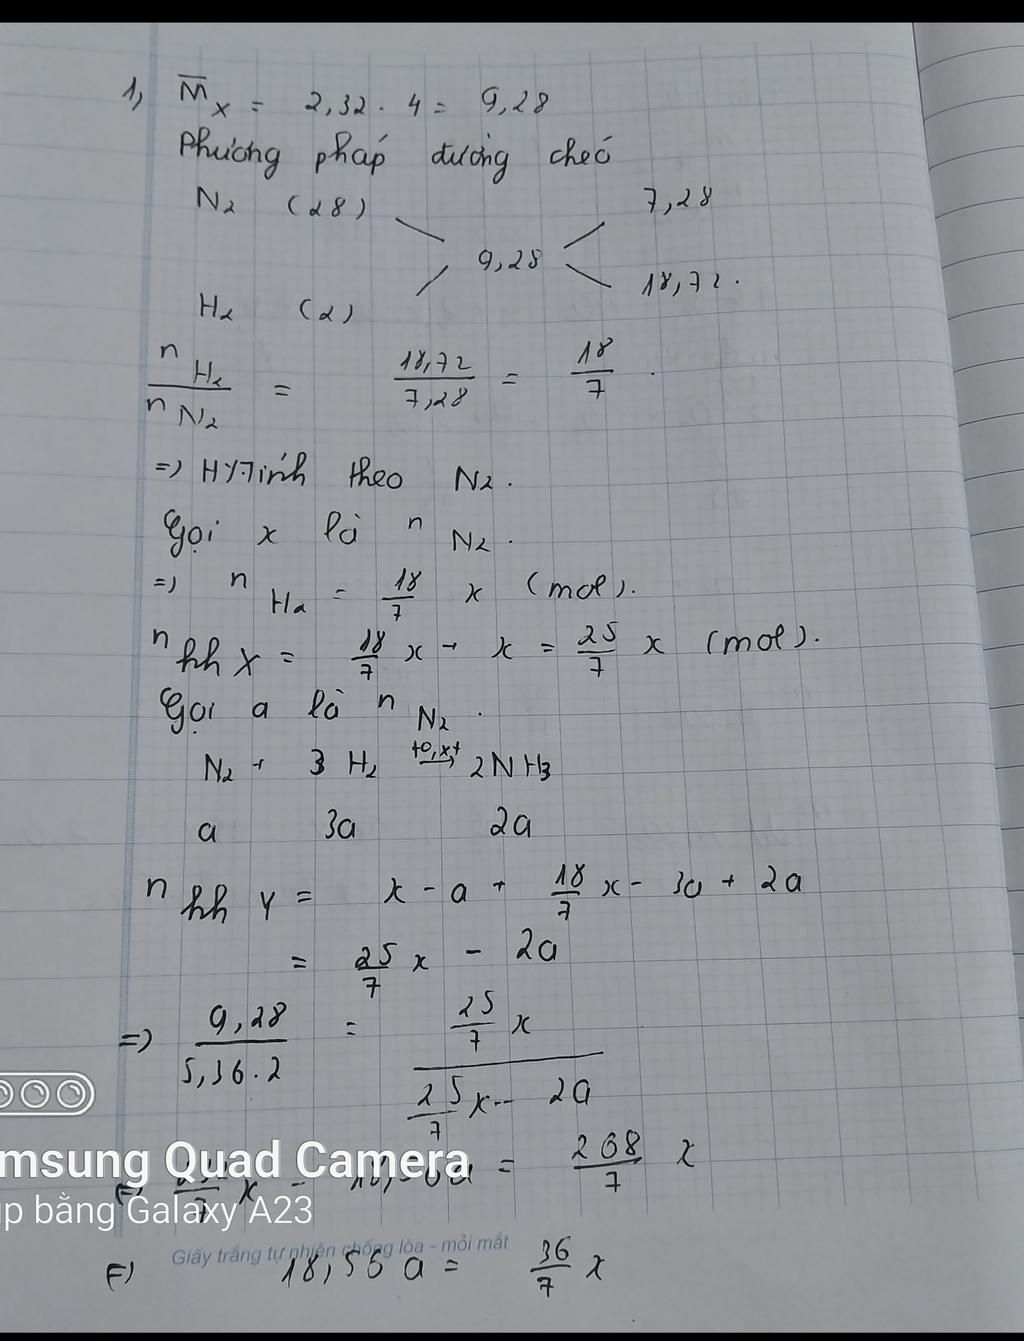 1, M̅ X = 2,32 . 4 = 9,28
Phương pháp đường chéo
N2 (28) 7,28
9,28
H2 (2) 18,72.
n H2 / n N2 = 18,72 / 7,28 = 18/7 .
=> theo N2.
Gọi x là n N2.
=> n H2 = 18/7 x (mol).
n hh X = 18/7 x + x = 25/7 x (mol).
Gọi a là n N2.
N2 + 3 H2 t0,xt → 2NH3
a 3a 2a
n hh Y = x - a + 18/7 x - 3a + 2a
= 25/7 x - 2a
=> 9,28 / 5,36.2 = 25/7 x / 25/7 x - 2a
= 268/7 x
Samsung Quad Camera
Chụp bằng Galaxy A23
Giấy trắng tự nhiên chống lóa - mỏi mắt
18,56 a = 36/7 x